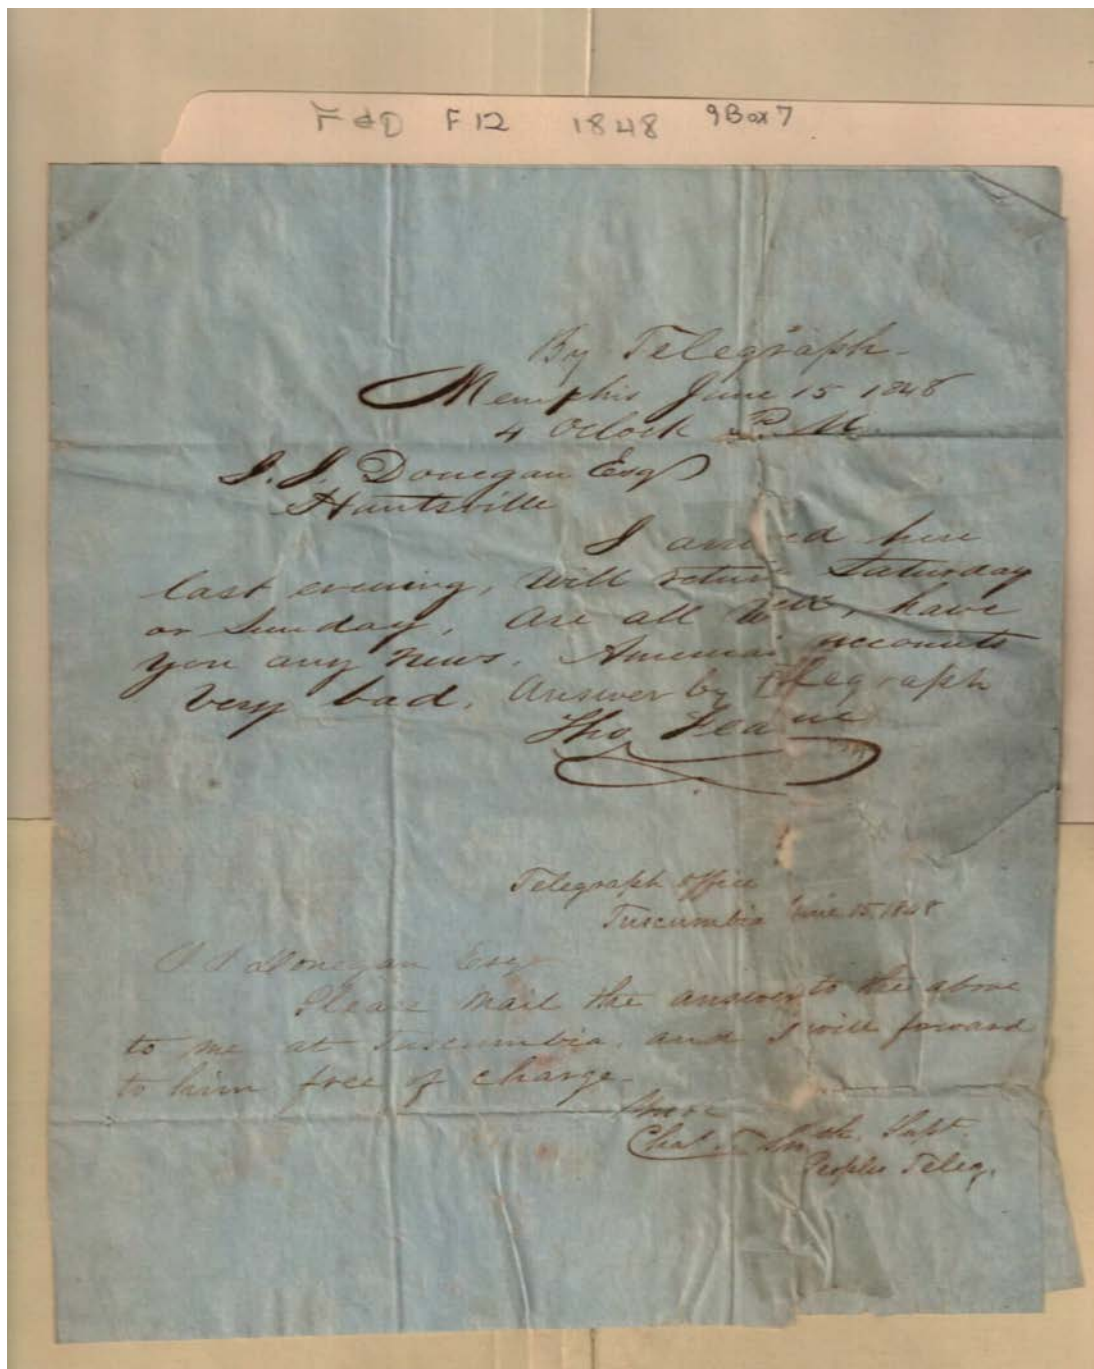 F & D F12 1848 9Box7
By Telegraph-
Memphis June 15 1848
4 Oclock P.M.
J. J. Donegan Esq
Huntsville
I arrived here
last evening, will return Saturday
or Sunday, are all well, have
you any news. accounts
very bad, answer by telegraph
Tho
Telegraph office
Tuscumbia June 15 1848
J J Donegan Esq
Please mail the answer to the above
to me at Tuscumbia, and I will forward
to him free of charge-
Chas T Smith, Supt.
Peoples Teleg.